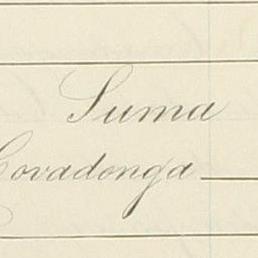 Suma
Covadonga